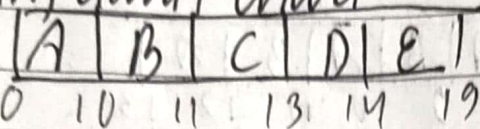 A B C D E
0 10 11 13 14 19